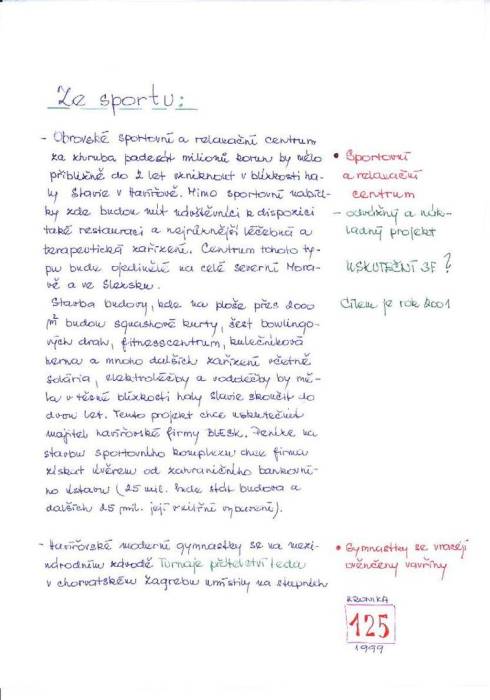 Ze sportu:
- Obrovské sportovní a relaxační centrum
za zhruba padesát milionů korun by mělo
přibližně do 2 let vzniknout v blízkosti ha-
ly Slavie v Havířově. Mimo sportovní nabíd-
ky zde budou mít návštěvníci k dispozici
také restauraci a nejrůznější léčebná a
terapeutická zařízení. Centrum tohoto ty-
pu bude ojedinělé na celé severní Mora-
vě a ve Slezsku.
Stavba budovy, kde na ploše přes 2000
m² budou squashové kurty, šest bowlingo-
vých drah, fitnesscentrum, kulečníková
herna a mnoho dalších zařízení včetně
solária, elektroléčby a vodoléčby by mě-
la v těsné blízkosti haly Slavie skončit do
dvou let. Tento projekt chce uskutečnit
majitel havířovské firmy BLESK. Peníze na
stavbu sportovního komplexu chce firma
získat úvěrem od zahraničního bankovní-
ho ústavu (25 mil. bude stát budova a
dalších 25 mil. její vnitřní vybavení).
- Havířovské moderní gymnastky se na mezi-
národním závodě Turnaje přátelství Leda
v chorvatském Zagrebu umístily na stupních
• Sportovní
a relaxační
centrum
- odvážný a nák-
ladný projekt
USKUTEČNÍ SE?
Cílem je rok 2001
• Gymnastky se vracejí
ověnčeny vavříny
KRONIKA
125
1999